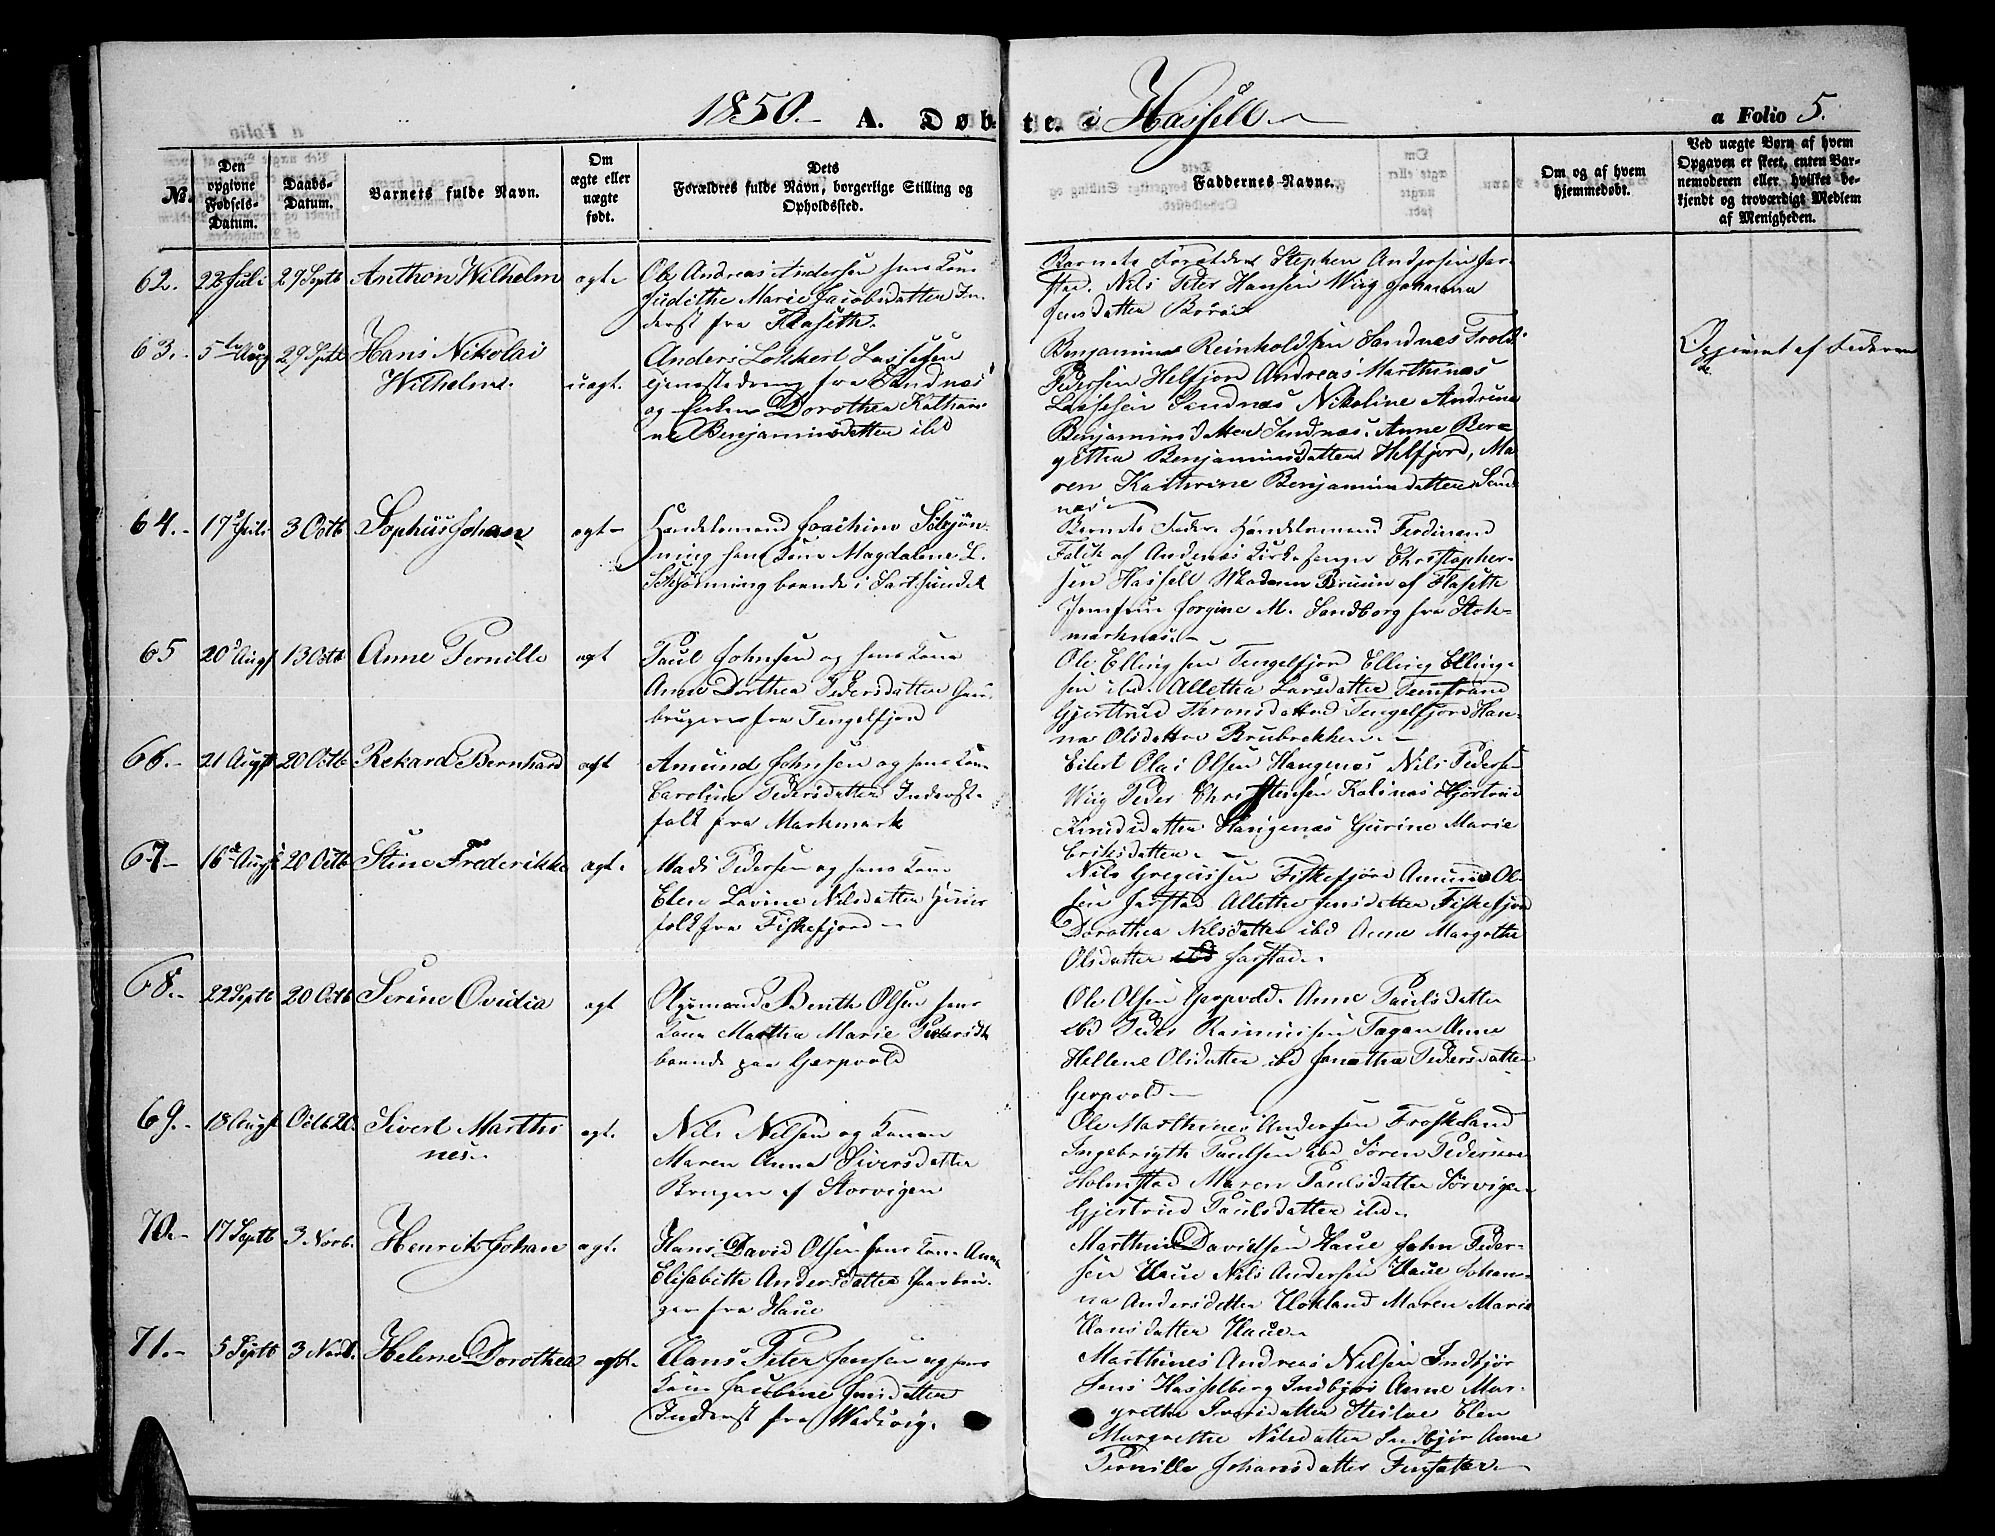 1850.- A. Døbte. i Hassell.
a Folio 5.
No.
Den opgivne Fødsels-Datum.
Daabs-Datum.
Barnets fulde Navn.
Om ægte eller uægte født.
Dets Forældres fulde Navn, borgerlige Stilling og Opholdssted.
Faddernes Navne.
Om og af hvem hjemmedøbt.
Ved uægte Børn af hvem Opgaven er skeet, enten Barnemoderen eller hvilket bekjendt og troværdigt Medlem af Menigheden.
62. 22 Juli 29 Septb Anthon Wilhelm ægte
Ole Andreas Andersen hans Kone
Judithe Marie Jacobsdatter In-
derst fra Flaseth.
Barnets Forældre Stephen Andersen Jar-
stad. Nils Peter Hansen Wiig Johanna
Jensdatter Börön
63. 5te Aug 29 Septb Hans Nikolai
Wilhelm. uægt.
Anders Lokkert Lassesen
Tjenestedreng fra Sandnæs
og Enken Dorothea Kathari-
ne Benjaminsdatter ibd
Benjamin Reinholdsen Sandnes Trold
Pedersen Helfjord Andreas Marthinus
Lassesen Sandnæs Nikoline Andrine
Benjaminsdatter Sandnæs. Anne Bere-
githa Benjaminsdatter Helfjord, Ma-
ren Katherine Benjaminsdatter Sand-
næs
Opgivet af Faderen
64. 17 Juli 3 Octb Sophus Johan ægt
Handelsmand Joachim Schjön-
ning hans Kone Magdalene L.
Schjönning boende i Sortlandet
Barnets Fader Handelsmand Ferdinand
Falck af Andenæs Kirkesanger Christopher-
sen Hassell Madam Bruun af Flaseth
Jomfru Jorgine M. Sandborg fra Stok-
marknæs.
65 20 Augst 13 Octb Anne Pernille ægt
Paul Johnsen og hans Kone
Anne Dorthea Pedersdatter Gaar-
brugere fra Tengelfjord
Ole Ellingsen Tengelfjord Elling Elling-
sen ibd. Alletha Larsdatter Temstrand
Gjertrud Aronsdatter Tengelfjord Han-
na Olsdatter Brubrekken
66. 21 Augst 20 Octb Rekard Bernhard ægt
Amund Johnsen og hans Kone
Caroline Pedersdatter Inderst-
folk fra Markmark
Eilert Olai Olsen Haugenæs Nils Pedersen
Wiig Peder Christensen Kalsnæs Hjertrud
Knudsdatter Haugenæs Gurine Marie
Eriksdatter
67 16 Augst 20 Octb Stine Frederikke ægt.
Mads Pedersen og hans Kone
Elen Lavine Nilsdatter Huus-
folk fra Fiskefjord
Nils Gregersen Fiskefjord Amund Ol-
sen Jarstad Allethe Jensdatter Fiskefjord
Dorothea Nilsdatter ibd Anne Margretha
Olsdatter ibd Jarstad.
68. 22 Septb 20 Octb Serine Ovidia ægt
Bentt Olsen hans
Kone Martha Marie Pedersdtr
boende paa Gjerpvold
Ole Olsen Gjerpvold. Anne Paulsdatter
ibd Peder Rasmussen Tagan Anne
Hellene Olsdatter ibd Janetha Pedersdatter
Gjerpvold
69. 18 Augst Octb 20. Sivert Marthi-
nus. ægt.
Nils Nilsen og Konen
Maren Anna Siversdatter
Bruger af Storvigen
Ole Marthines Andersen Froskeland
Ingebrigth Paulsen ibd Sören Pedersen
Holmstad Maren Paulsdatter Sörvigen
Gjertrud Paulsdatter ibd.
70. 17 Septb 3 Novb. Henrik Johan ægt.
Hans David Olsen hans Kone Anne
Elisabethe Andersdatter Gaarbru-
ger fra Haue
Marthin Davidsen Haue John Peder-
sen Haue Nils Andersen Haue Johan-
na Andersdatter Hokland Maren Marie
Hansdatter Haue
71. 5 Septb 3 Novb. Helene Dorothea ægt.
Hans Peter Jensen og hans
Kone Jacobine Jensdatter
Inderst fra Wadvig.
Marthines Andreas Nilsen Indbjör
Jens Hasselberg Indbjör Anne Mar-
gretha Iversdatter Elen
Margrethe Nilsdatter Indbjör Anne
Pernille Johansdatter